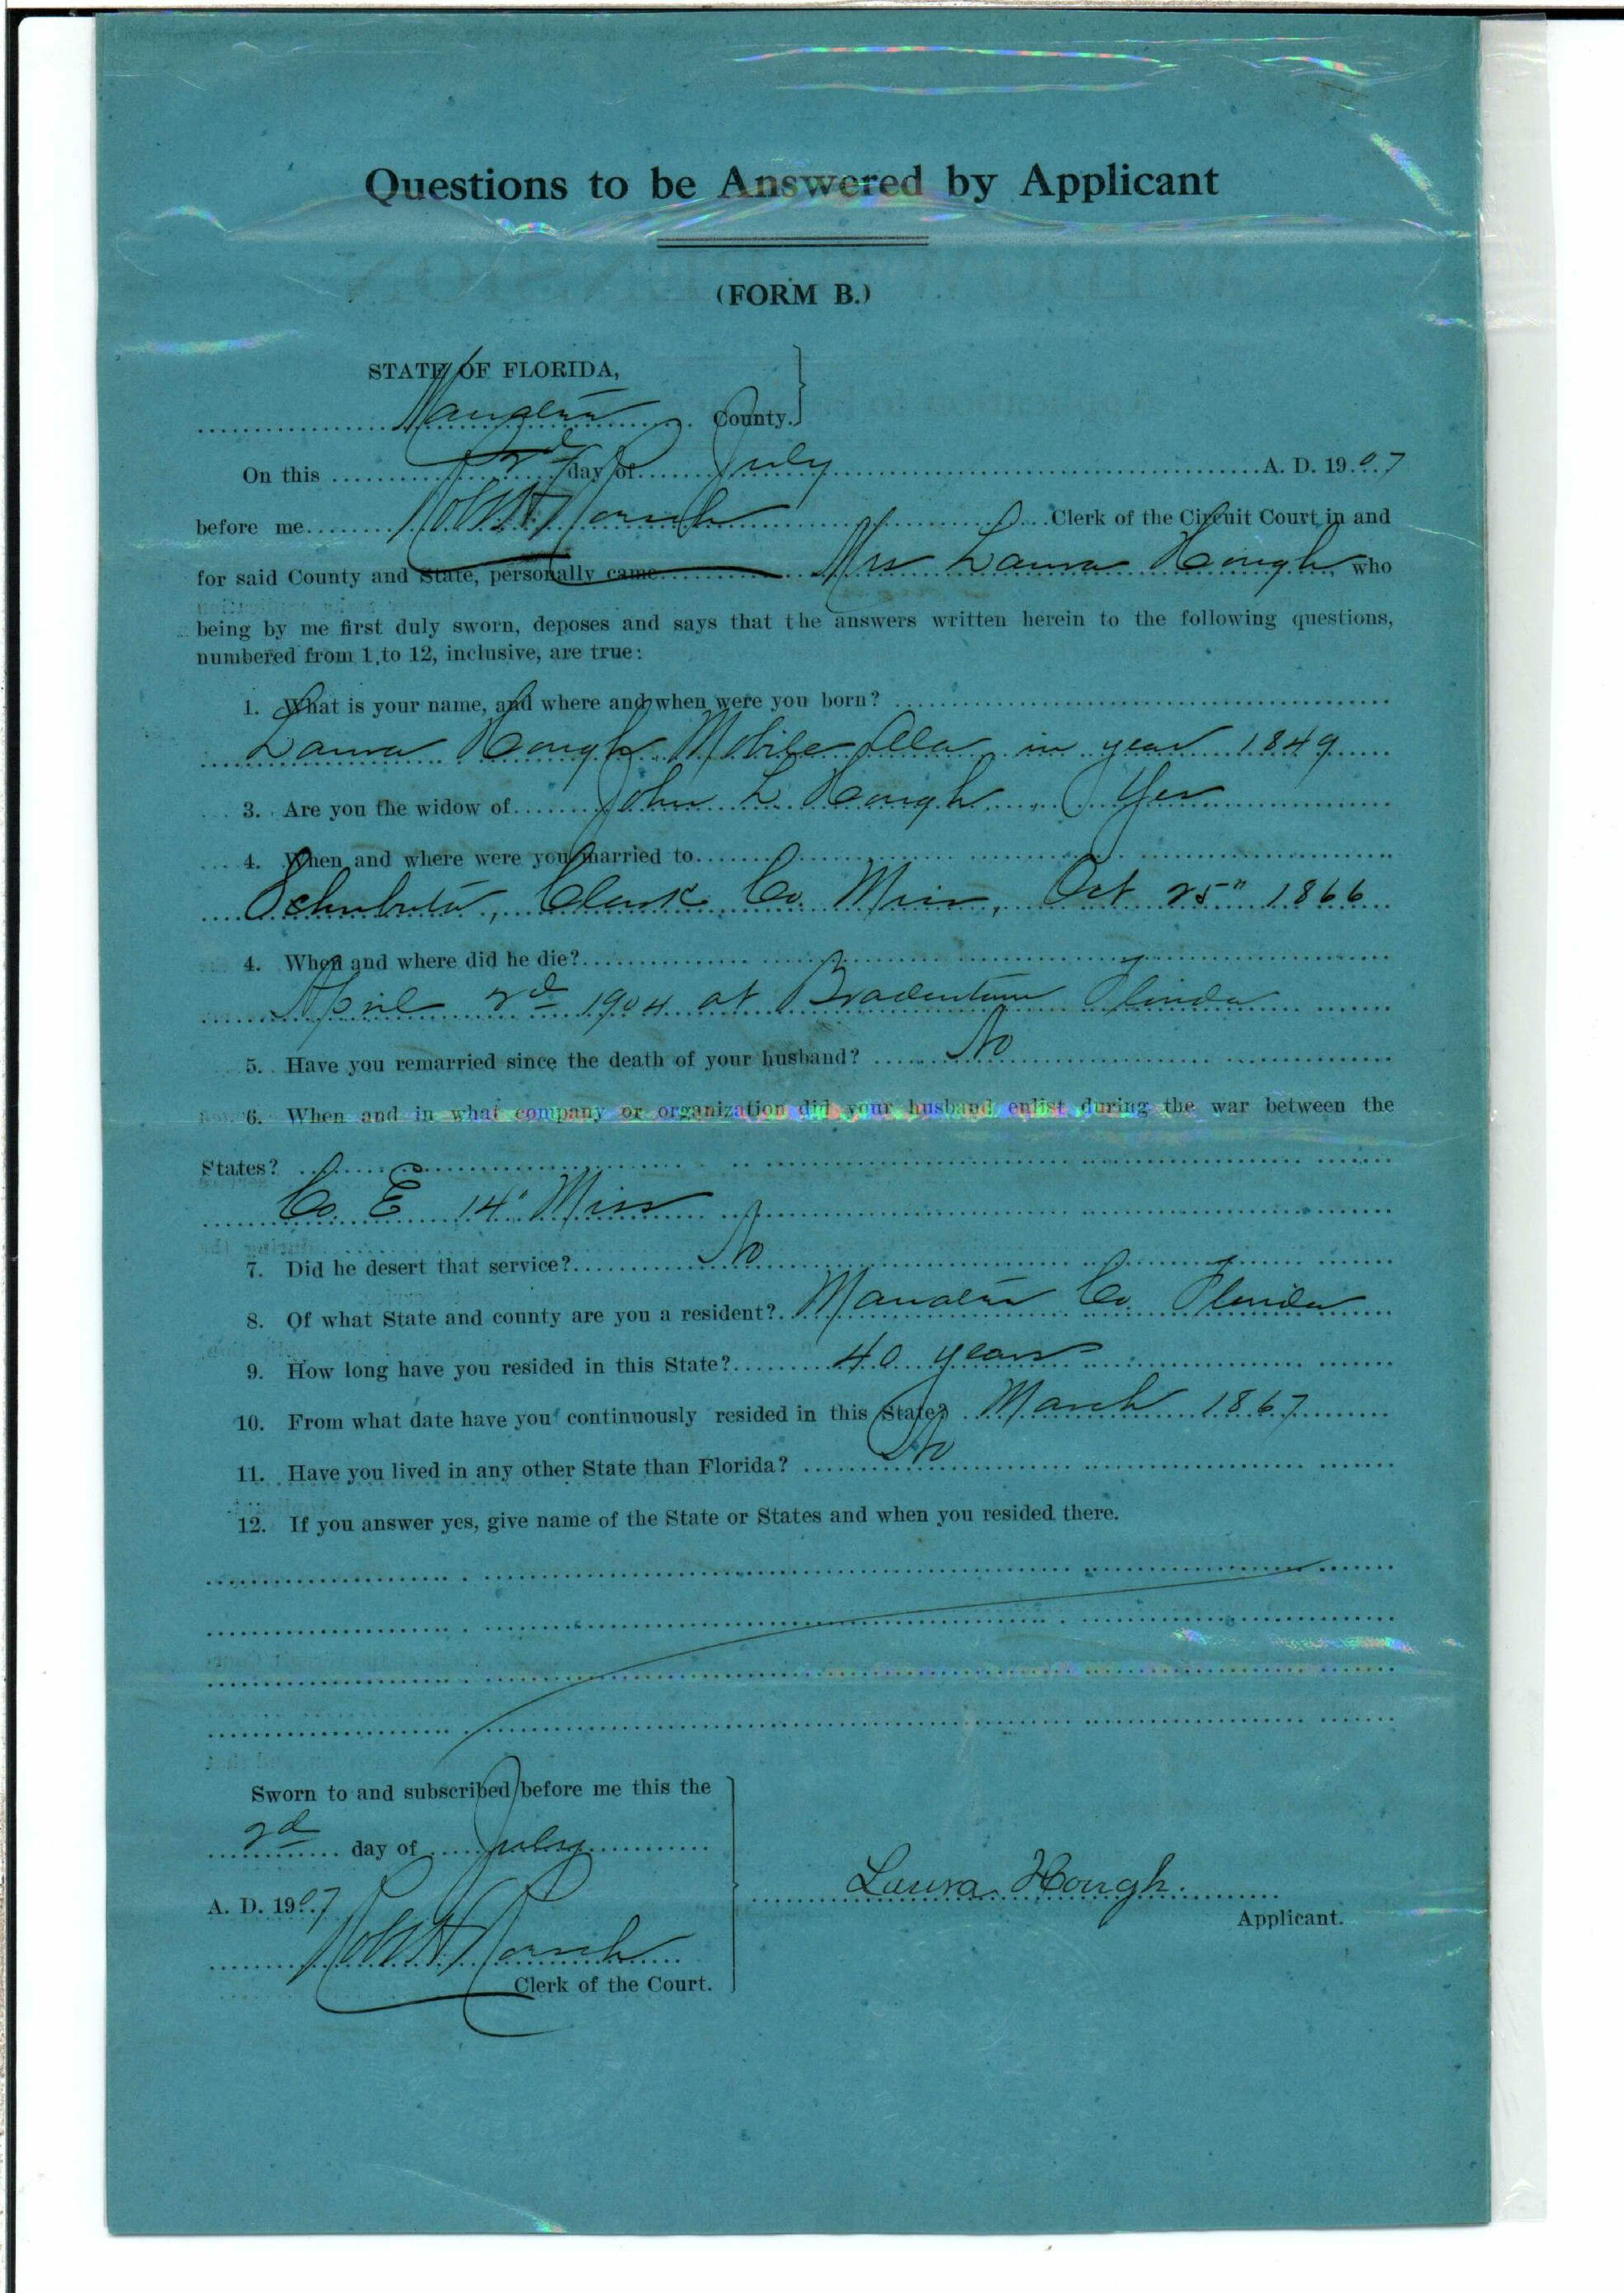 Questions to be Answered by Applicant
(FORM B.)
STATE OF FLORIDA,
Manatee County.
On this 2d day of July A. D. 1907
before me Robt H Roesch Clerk of the Circuit Court in and
for said County and State, personally came Mrs Laura Hough who
being by me first duly sworn, deposes and says that the answers written herein to the following questions,
numbered from 1 to 12, inclusive, are true:
1. What is your name, and where and when were you born?
Laura Hough Mobile Ala, in year 1849
3. Are you the widow of John L Hough Yes
4. When and where were you married to
Schubuta, Clark Co. Miss, Oct 25" 1866
4. When and where did he die?
April 2d 1904 at Bradentown Florida
5. Have you remarried since the death of your husband? No
6. When and in what company or organization did your husband enlist during the war between the
States?
Co. E 14" Miss
7. Did he desert that service? No
8. Of what State and county are you a resident? Manatee Co Florida
9. How long have you resided in this State? 40 years
10. From what date have you continuously resided in this State? March 1867
11. Have you lived in any other State than Florida? No
12. If you answer yes, give name of the State or States and when you resided there.
Sworn to and subscribed before me this the
2d day of July
A. D. 1907
Laura Hough.
Applicant.
Robt H Roesch
Clerk of the Court.